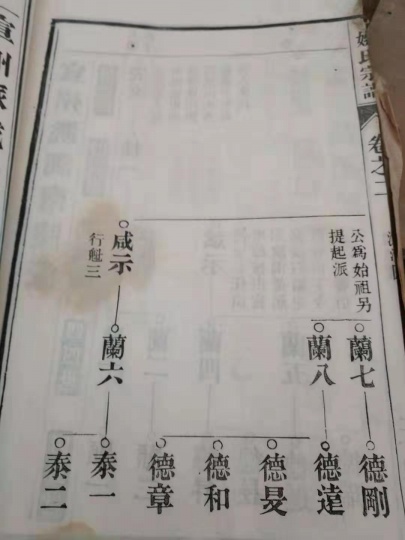 姚氏宗譜
卷之二
公爲始祖另
提起派
蘭七
德剛
蘭八
德達
德旻
德和
德章
咸示
行魁三
蘭六
泰一
泰二